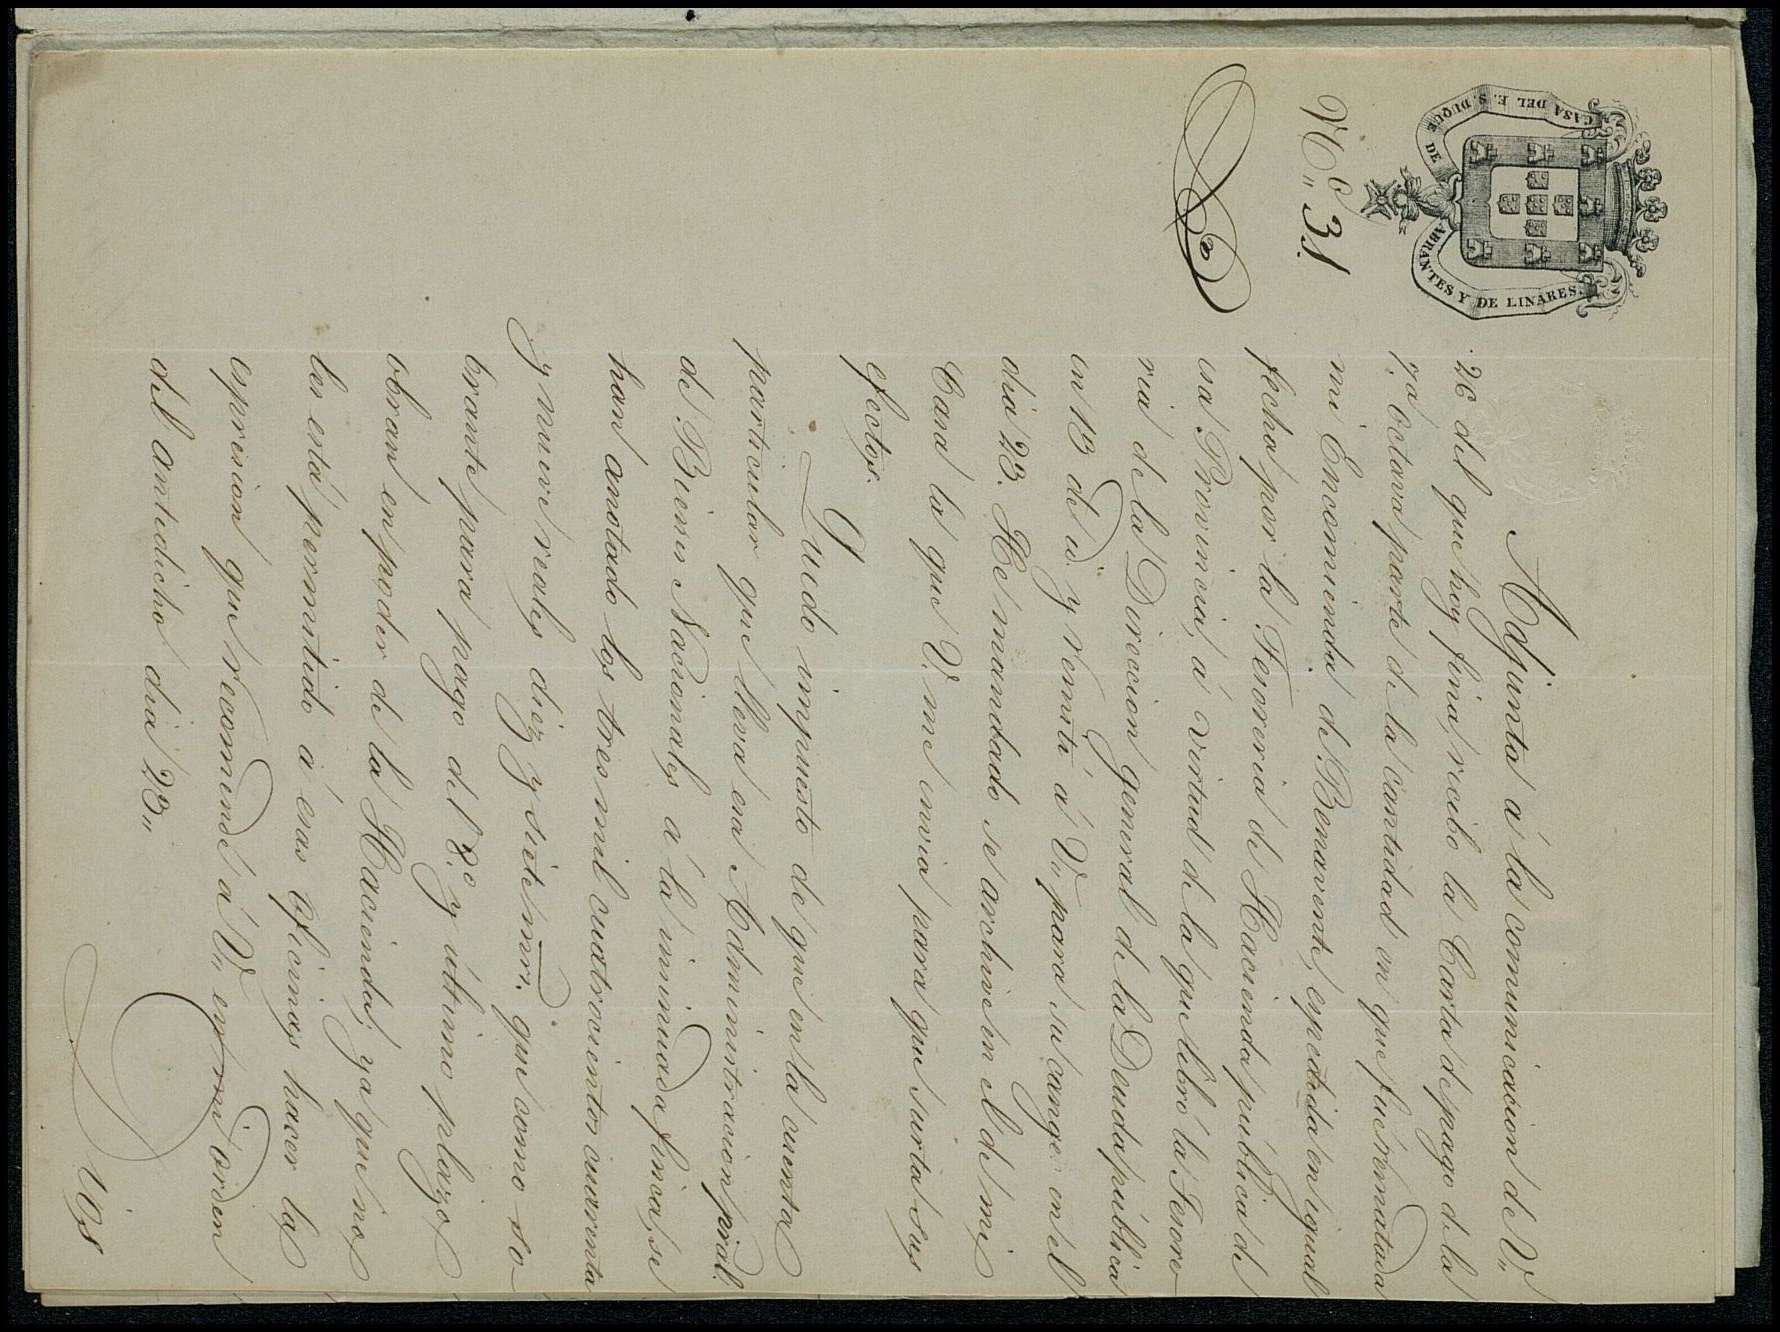 CASA DEL E. S. DUQUE DE ABRANTES Y DE LINARES.
N.º 31.
Adjunta á la comunicacion de V.
26 del que hoy fina, recibo la Carta de pago de la
7.ª octava parte de la cantidad en que fué rematada
mi Encomienda de Benavente, espedida en igual
fecha por la Tesoreria de Hacienda pública de
esa Provincia, á virtud de la que libró la Tesore-
ria de la Direccion general de la Deuda pública
en 13 de id. y remití á V. para su cange en el
dia 23. He mandado se archive en el de mi
Casa la que V. me envia para que surta sus
efectos.
Quedo impuesto de que en la cuenta
particular que lleva esa Administracion pral.
de Bienes Nacionales á la insinuada finca, se
han anotado los tres mil cuatrocientos cuarenta
y nueve reales diez y siete mrs. que como so-
brante para pago del 8.º y último plazo
obran en poder de la Hacienda; ya que no
les está permitido á esas oficinas hacer la
espresion que recomendé á V. en mi órden
del antedicho dia 23.